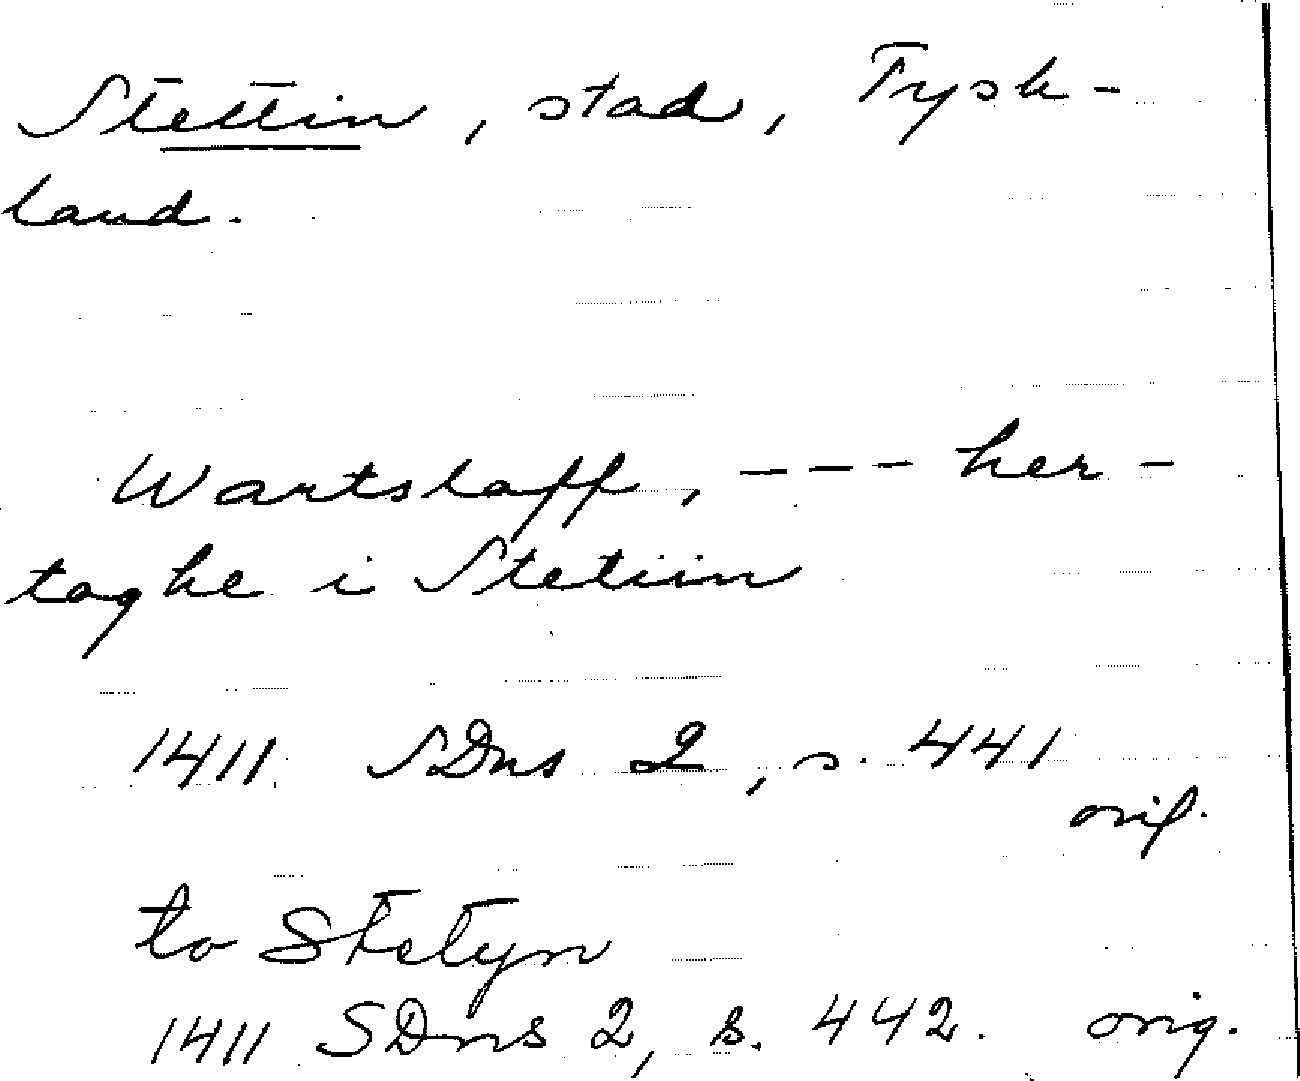 Stettin, stad, Tysk-
land.
Wartslaff, --- her-
taghe i Stetiin
1411 SDns 2, s. 441
orig.
to Stetyn
1411 SDns 2, s. 442. orig.